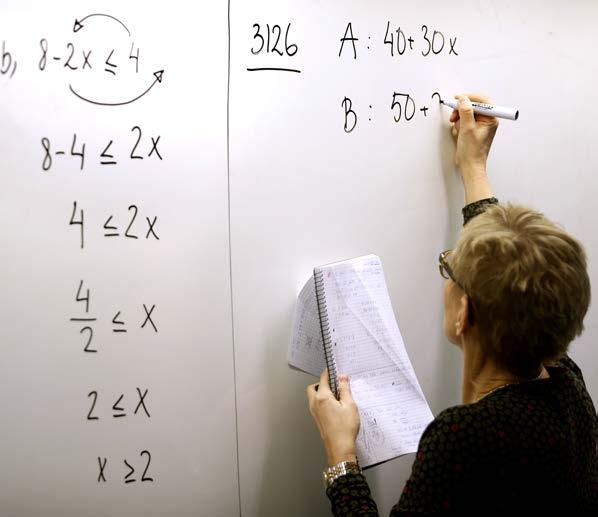 b, 8-2x ≤ 4
8-4 ≤ 2x
4 ≤ 2x
4/2 ≤ x
2 ≤ x
x ≥ 2
3126
A: 40+30x
B: 50+